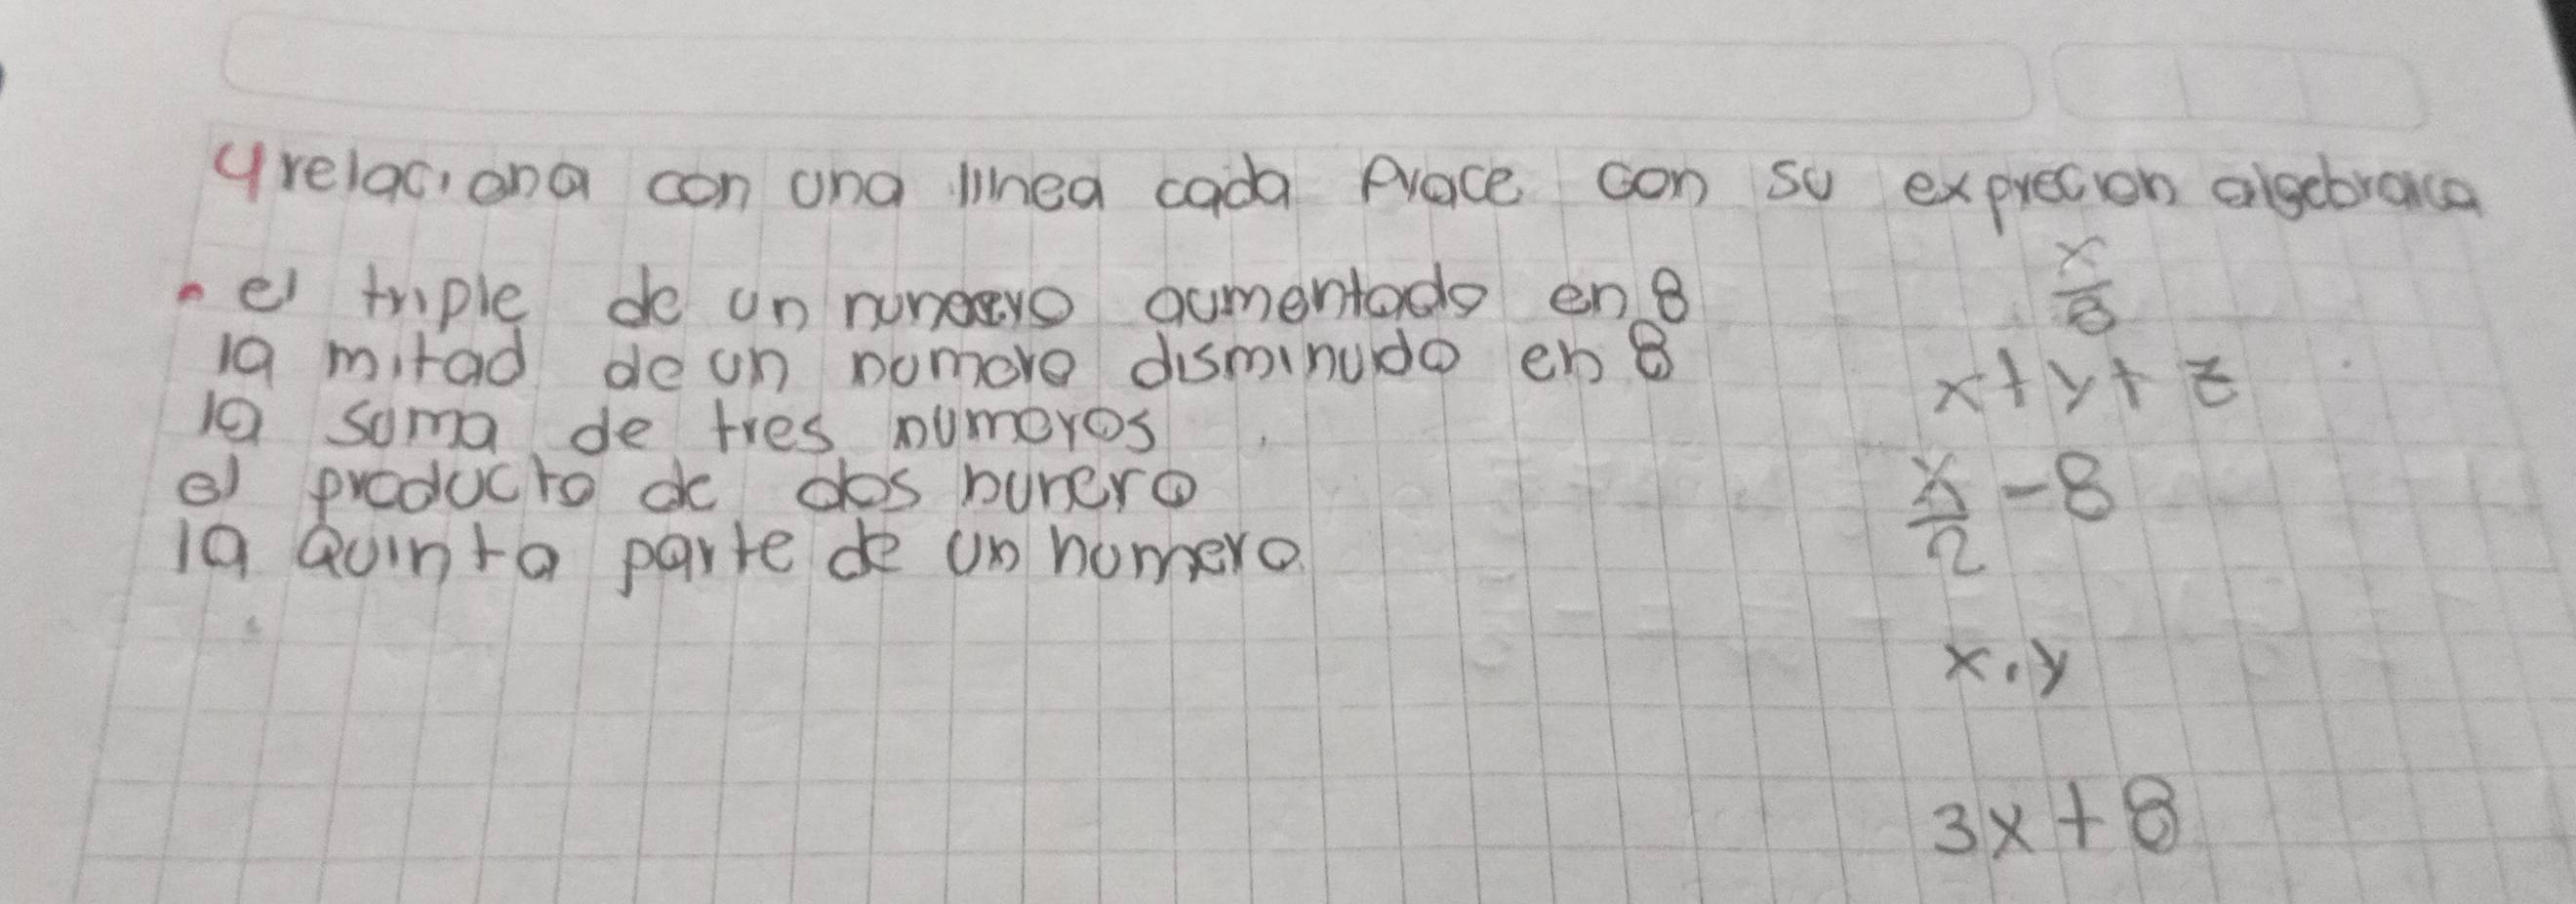 4 relaciona con una linea cada frace con su exprecion algebraica
• el triple de un numero aumentado en 8
x/8
la mitad de un numero disminudo en 8
x+y+z
la suma de tres numeros
el producto de dos nunero
x/2 - 8
la quinta parte de un numero
x.y
3x+8